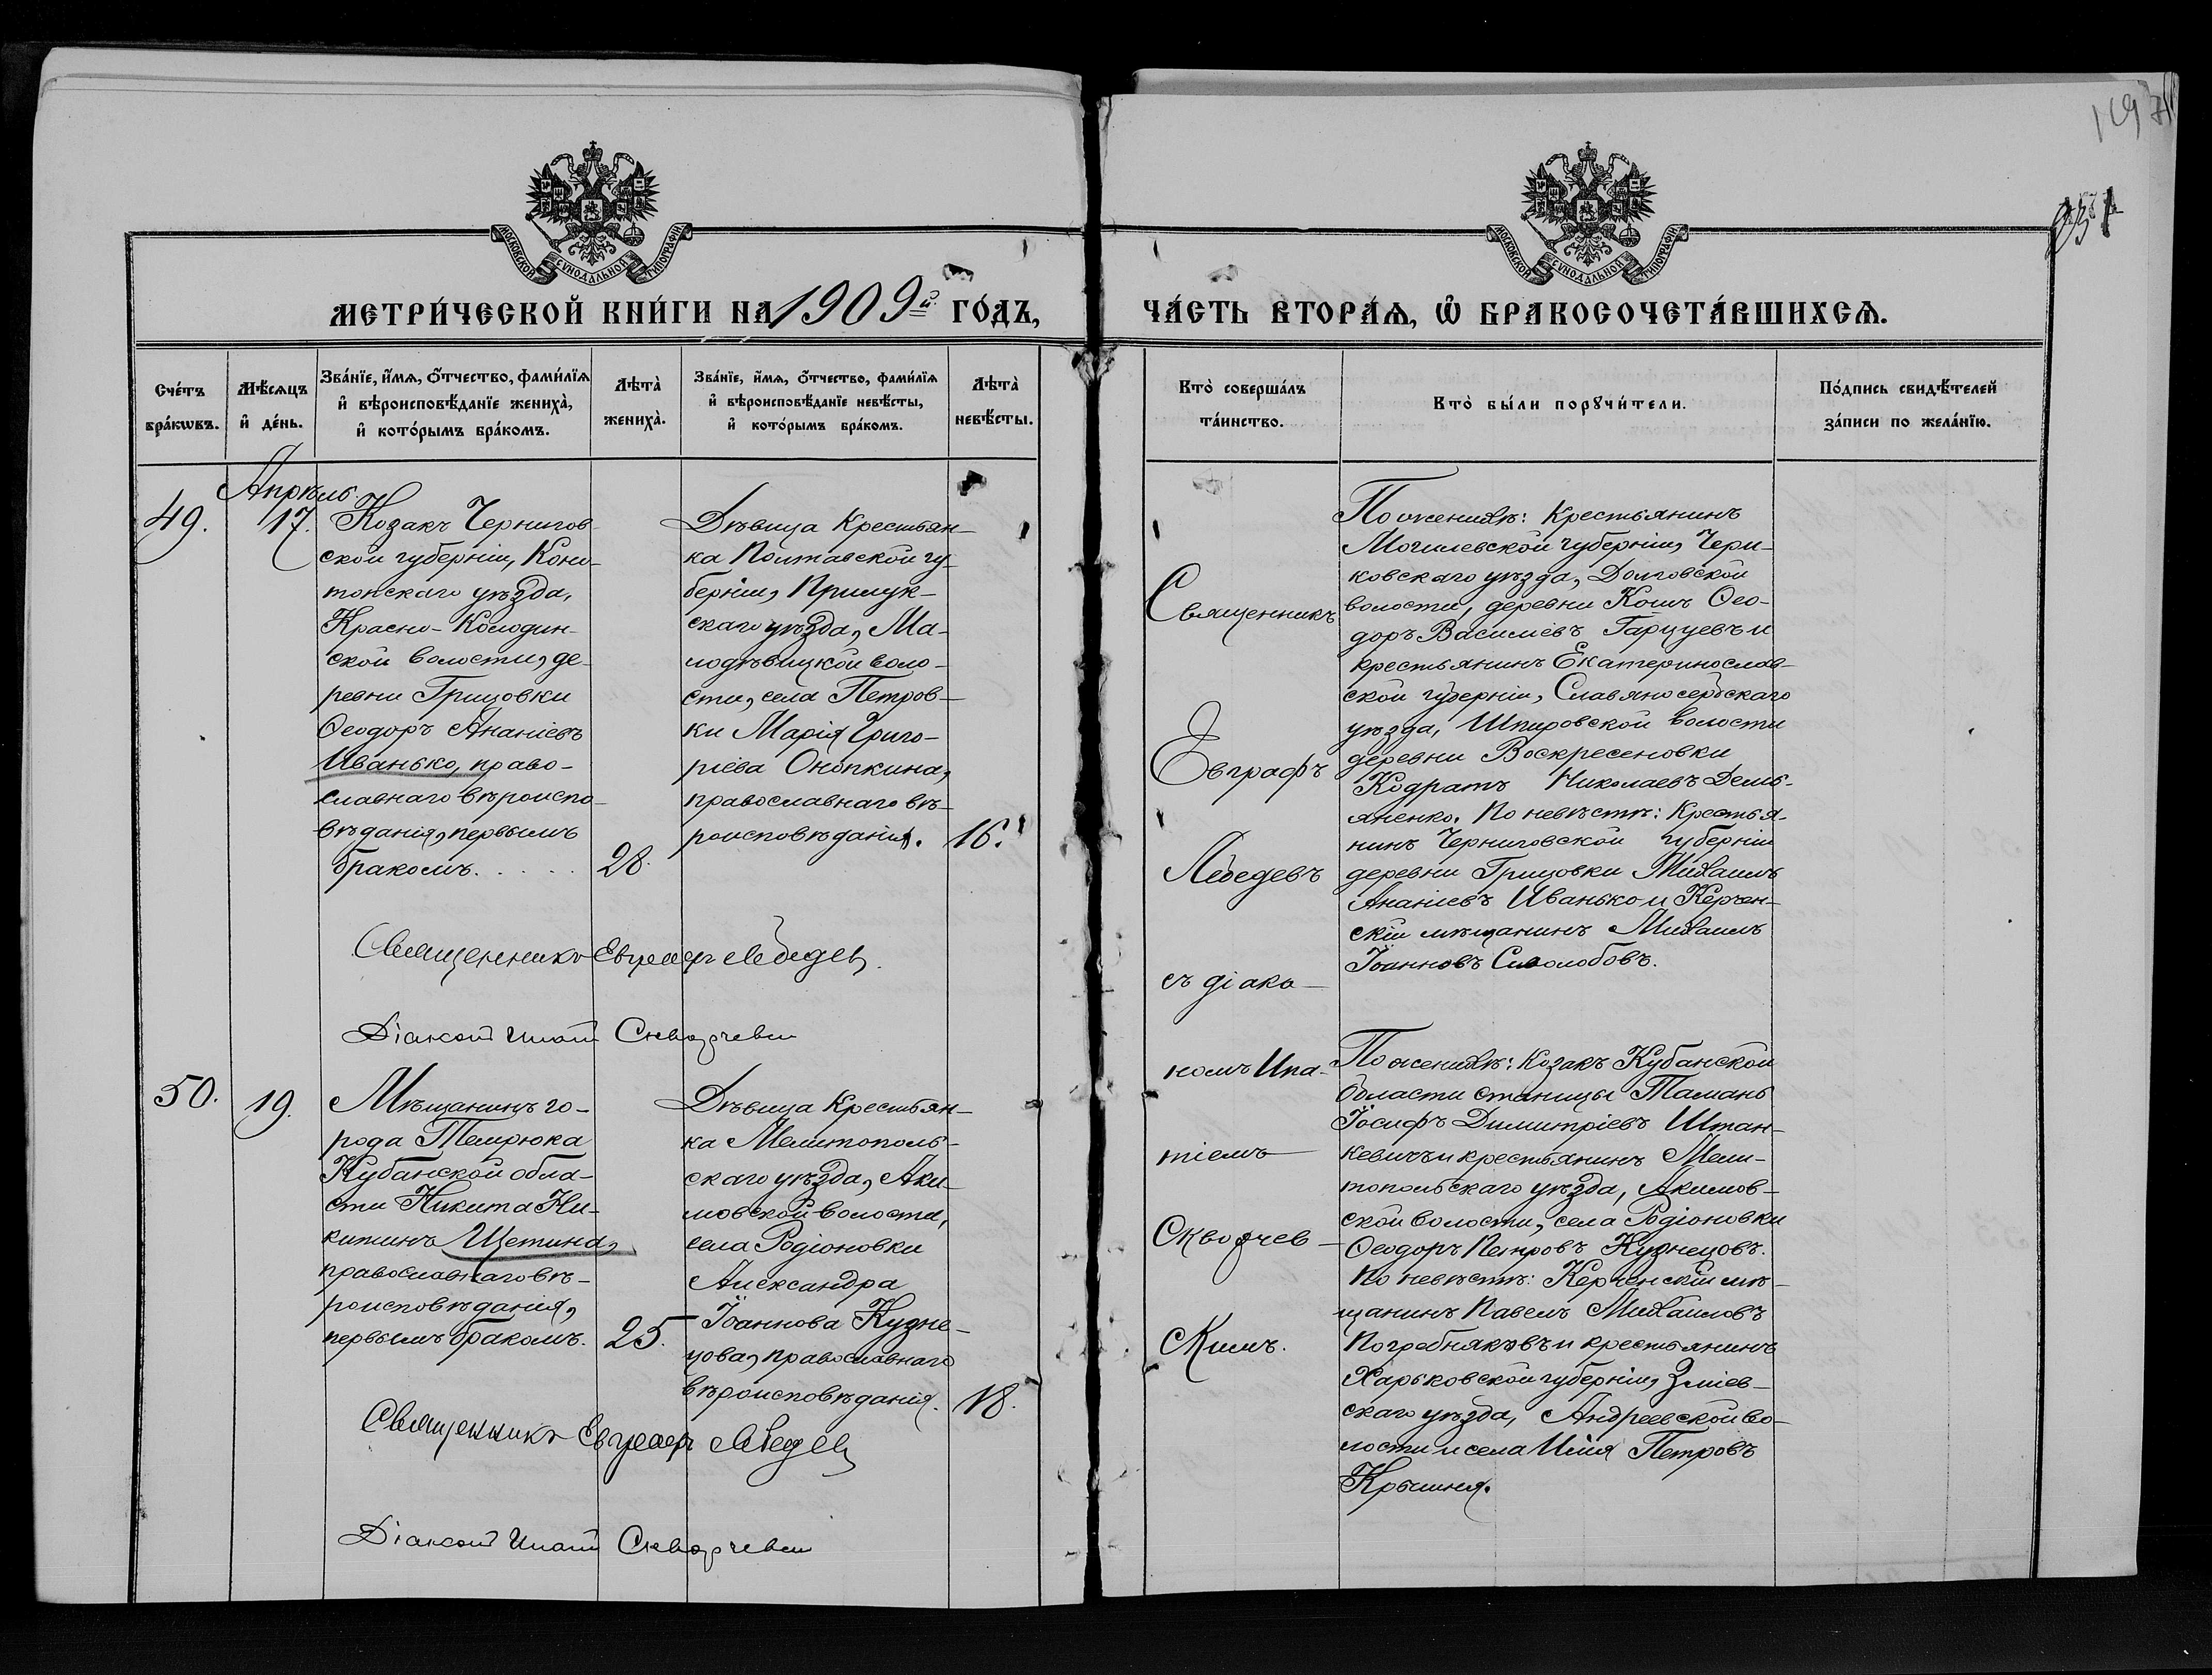 1197
МОСКОВСКОЙ СѴНОДАЛЬНОЙ ТИПОГРАФІИ
МОСКОВСКОЙ СѴНОДАЛЬНОЙ ТИПОГРАФІИ
МЕТРИ́ЧЕСКОЙ КНИ́ГИ НА 1909й ГО́ДЪ,
ЧА́СТЬ ВТОРА́Ѧ, Ѽ БРАКОСОЧЕТА́ВШИХСѦ.
Сче́тъ бра́кѡвъ.
Мѣ́сяцъ и҆ де́нь.
Зва́нїе, и҆́мѧ, ѻ҆́тчество, фами́лїѧ
и҆ вѣроисповѣ́данїе жениха̀,
и҆ кото́рымъ бра́комъ.
Лѣта̀ жениха̀.
Зва́нїе, и҆́мѧ, ѻ҆́тчество, фами́лїѧ
и҆ вѣроисповѣ́данїе невѣ́сты,
и҆ кото́рымъ бра́комъ.
Лѣта̀ невѣ́сты.
Кто̀ соверша́лъ
та́инство.
Кто̀ бы́ли порꙋчи́тели.
По́дпись свидѣ́телей
за́писи по жела́нїю.
49.
Апрѣль.
17.
Козакъ Чернигов
ской губерніи, Коно-
топскаго уѣзда,
Красно-Колодин-
ской волости, де-
ревни Грицовки
Ѳеодоръ Ананіевъ
Иванько, право-
славнаго вѣроиспо-
вѣданія, первымъ
бракомъ.....
28.
Дѣвица Крестьян-
ка Полтавской гу-
берніи, Прилук-
скаго уѣзда, Ма-
лодѣвицкой воло-
сти, села Петров-
ки Марія Григо-
ріева Онопкина,
православнаго вѣ-
роисповѣданія.
16.
Священникъ Евграфъ Лебедевъ
Діаконъ Ипатій Скворчевскій
50.
19.
Мѣщанинъ го-
рода Темрюка
Кубанской обла-
сти Никита Ни-
китинъ Щетина,
православнаго вѣ-
роисповѣданія,
первымъ бракомъ.
25.
Дѣвица Крестьян-
ка Мелитополь-
скаго уѣзда, Аки-
мовской волости,
села Родіоновки
Александра
Іоаннова Кузне-
цова, православнаго
вѣроисповѣданія.
18.
Священникъ Евграфъ Лебедевъ
Діаконъ Ипатій Скворчевскій
Священникъ
Евграфъ
Лебедевъ
съ діако-
номъ Ипа-
тіемъ
Скворчев-
скимъ.
По женихѣ: Крестьянинъ
Могилевской губерніи, Чери-
ковскаго уѣзда, Долговской
волости, деревни Кошъ Ѳео-
доръ Василіевъ Гарцуевъ и
крестьянинъ Екатеринослав-
ской губерніи, Славяносербскаго
уѣзда, Шпировской волости
деревни Воскресеновки
Кодратъ Николаевъ Демь-
яненко. По невѣстѣ: Крестья-
нинъ Черниговской губерніи
деревни Грицовки Михаилъ
Ананіевъ Иванько и Керчен-
скій мѣщанинъ Михаилъ
Іоанновъ Сиволобовъ.
По женихѣ: Козакъ Кубанской
области станицы Тамань
Іосифъ Димитріевъ Штан-
кевичъ и крестьянинъ Мели-
топольскаго уѣзда, Акимов-
ской волости, села Родіоновки
Ѳеодоръ Петровъ Кузнецовъ.
По невѣстѣ: Керченскій мѣ-
щанинъ Павелъ Михаиловъ
Погребняковъ и крестьянинъ
Харьковской губерніи, Зміев-
скаго уѣзда, Андреевской во-
лости и села Илія Петровъ
Крышня.